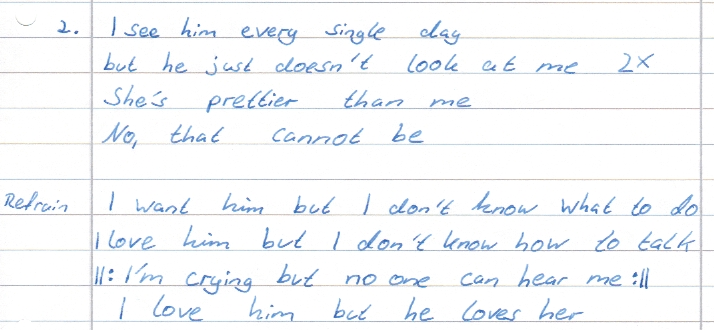 2. I see him every single day
but he just doesn't look at me 2x
She's prettier than me
No, that cannot be
Refrain I want him but I don't know what to do
I love him but I don't know how to talk
||: I'm crying but no one can hear me :||
I love him but he loves her